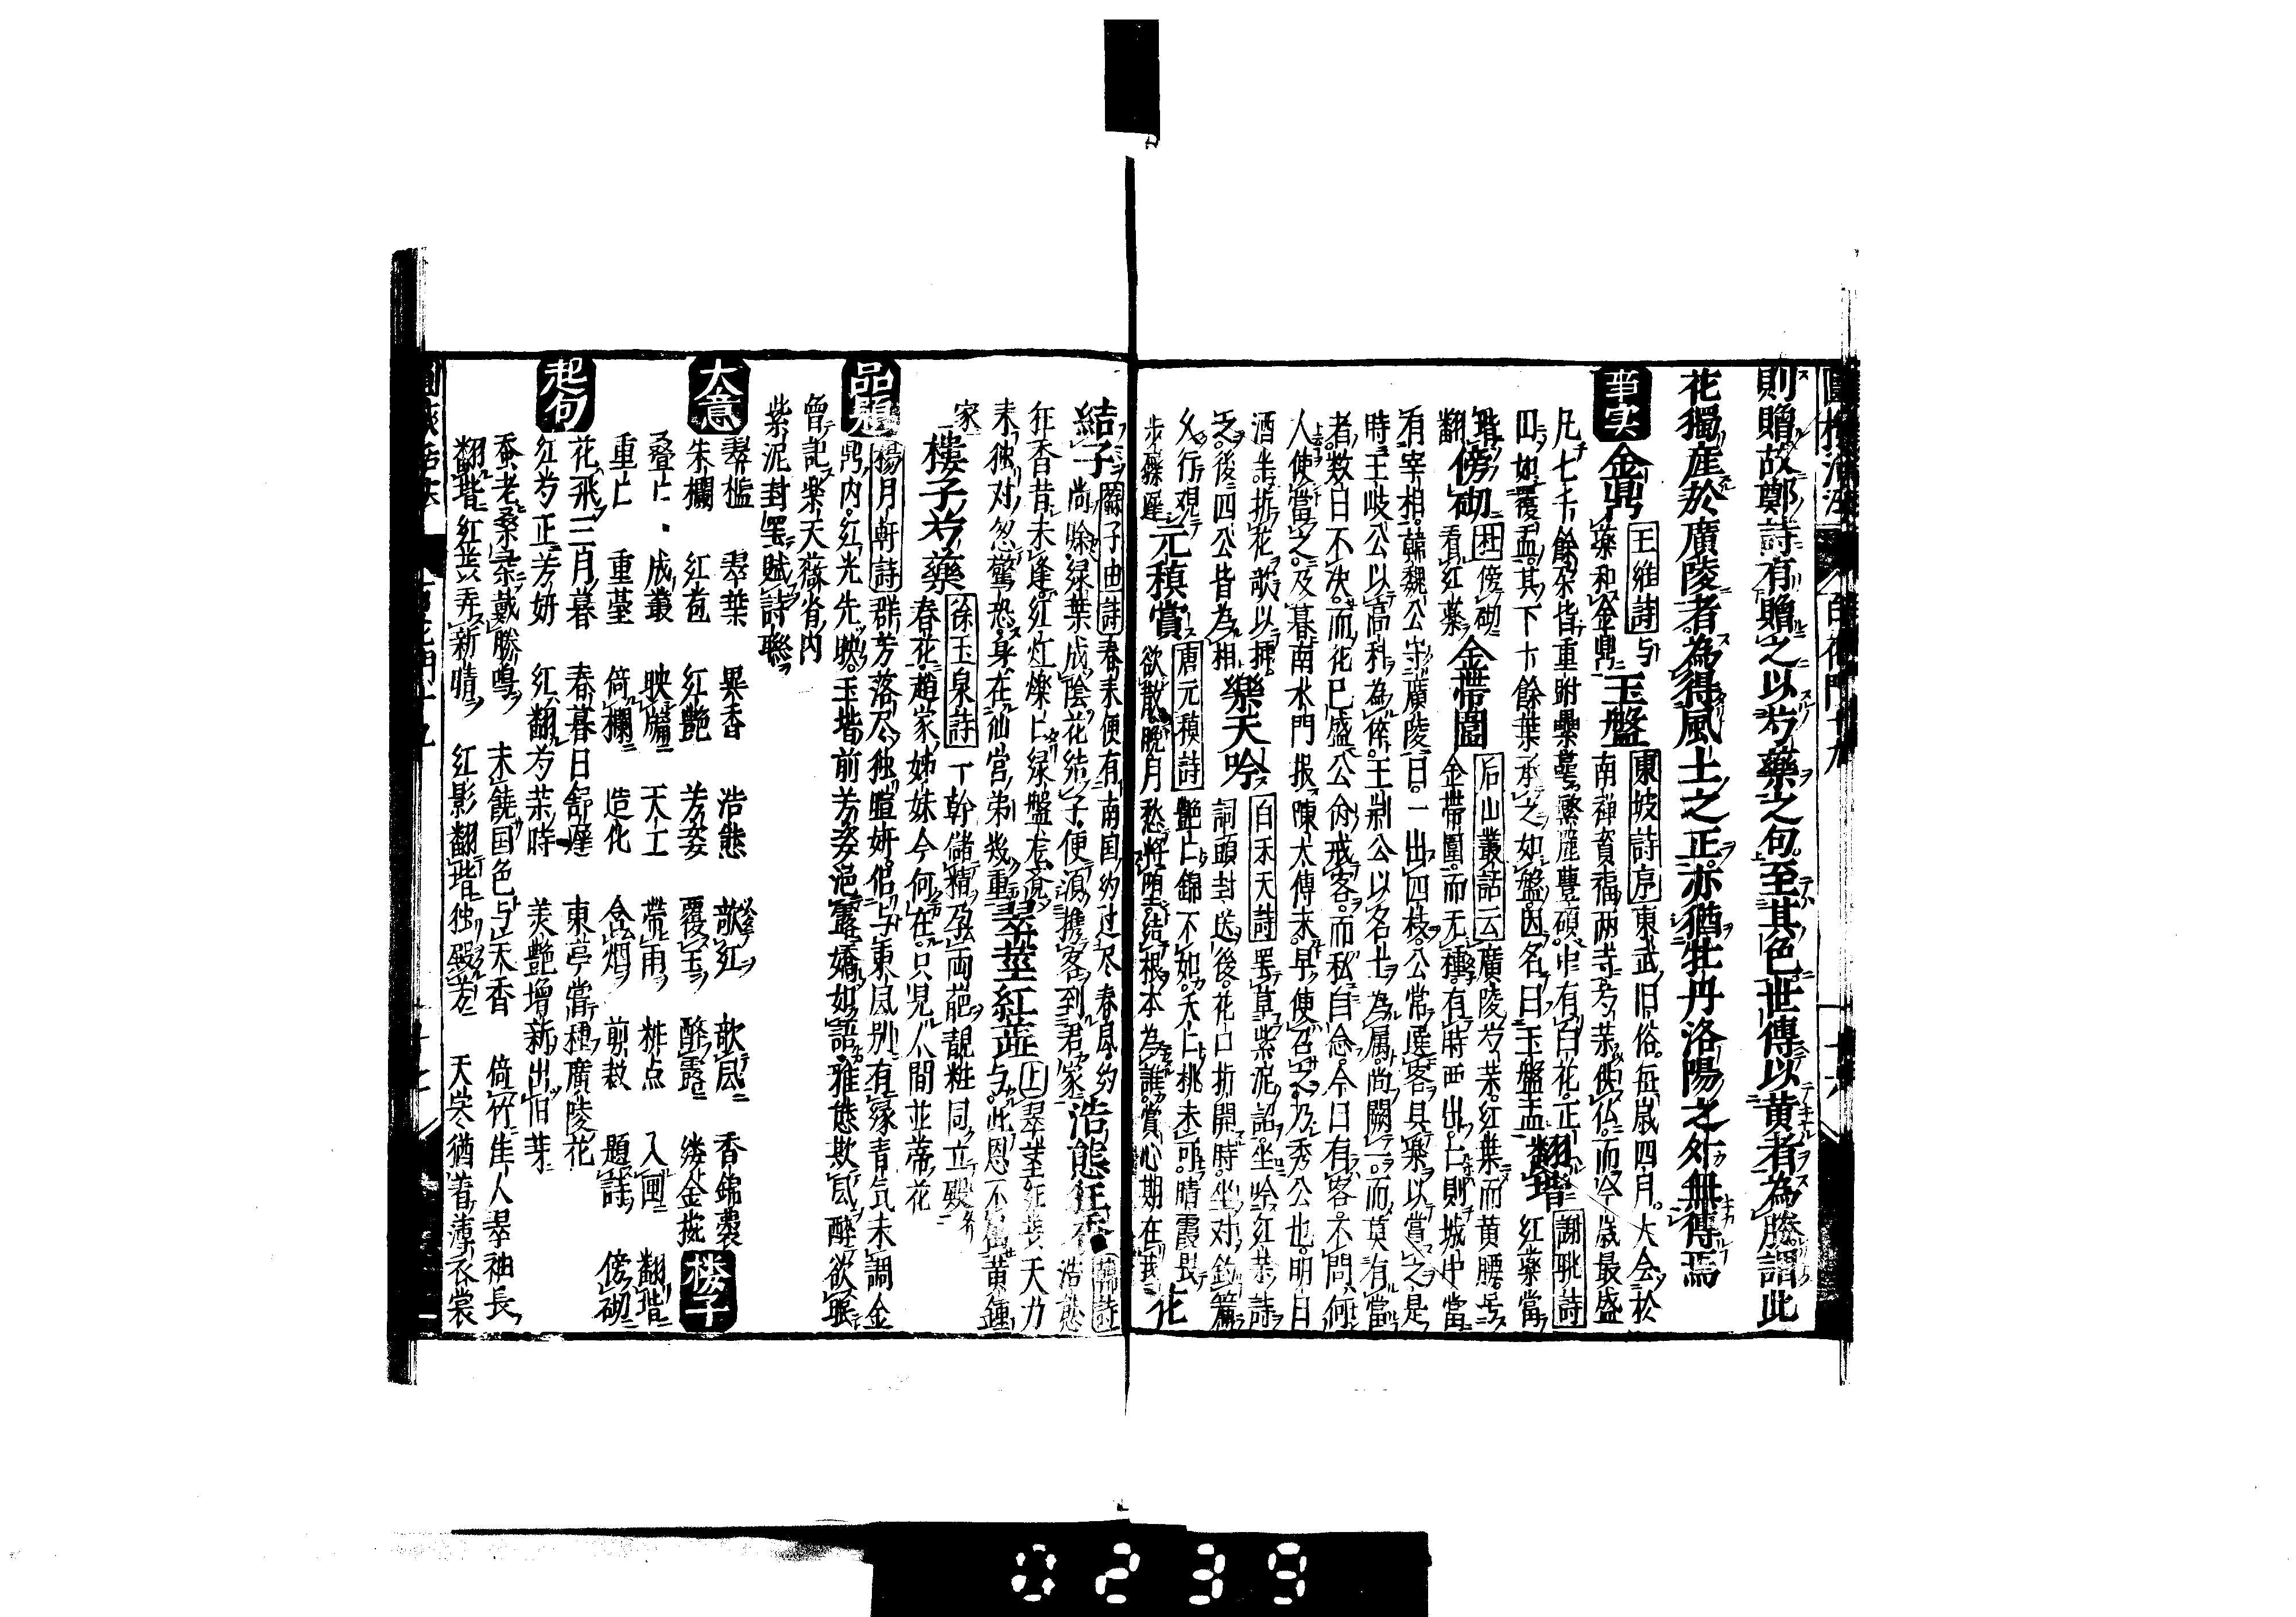 則贈故鄭詩有贈之以芍藥之句至其色世傳以黄者為勝謂此
花獨産於廣陵者為得風土之正亦猶牡丹洛陽之外無傳焉
事実 金鼎 王維詩 与
藥和金鼎 玉盤 東坡詩序 東武旧俗每歳四月大会於
南禅資福両寺芍茶供仏而今歳最盛
凡七千餘朶皆重跗累萼繁麗豊碩中有白花正
円如覆盂其下十餘葉承之如盤因名曰玉盤盂 翻堦 謝朓詩
紅藥當
堦翻 傍砌 杜 傍砌
看紅藥 金帯圍 后山叢話云 廣陵芍茶紅葉而黄腰号
金帯圍而无種有時而出出則城中當
有宰相韓魏公守廣陵日一出四枝公常選客具樂以賞之是
時王岐公以高科為倅王荆公以名士為属尚闕一而莫有當
者数日不决而花已盛公命戒客而私自念今日有客不問何
人使當之及暮南水門报陳太傅来早使召之乃秀公也明日
酒半折花歌以挿
之後四公皆為相 樂天吟 白禾天詩 罢草紫泥詔坐吟紅茶詩
詞頭封送後花口折開時坐对鈎簾
久行觀
步礫遅 元稹賞 唐元稹詩 艷亡錦不如夭亡桃未可晴霞畏
欲散晩月愁将堕結根本為誰賞心期在我 化
結子 尚賒緑葉成陰花結子便須携客到君家 浩態狂香 韓詩
春来便有南国約过尽春風約
浩態
狂香昔未逢紅灯爍亡緑盤 翠莖紅蕋 上
翠莖紅蕋天力
来独对忽驚恐身在仙宮弟幾重 与此恩不属黄鍾
家 樓子芍藥 徐玉泉詩 一幹儲精孕両葩靚粧同立殿
春花趙家姊妹今何在只見人間並蒂花
品題 楊月軒詩 群芳落尽独暄妍伯与東風别有縁青気未調金
鼎内紅光先映玉堦前芳姿浥露嬌如語雅態欺風醉欲眠
曾記樂天薇省内
紫泥封罢賦詩聯
大意 翠檻 翠葉 異香 浩態 歆紅 歆風 香錦裹
朱欄 紅苞 紅艶 芳姿 覆玉 醉露 縷金㧞 楼子
叠亡 成叢 映牖 天工 帯雨 粧点 入画 翻堦
重亡 重䑓 倚欄 造化 含烟 剪裁 題詩 傍砌
起句 花飛三月暮 春暮日舒遅 東亭當種廣陵花
紅芍正芳妍 紅翻芍茶時 羡艶增新出旧芽
蚕老桑柔戴勝鳴 未饒国色与天香 倚竹佳人翠袖長
翻堦紅蕋弄新晴 紅影翻堦独殿芳 天寒猶着薄衣裳
0239